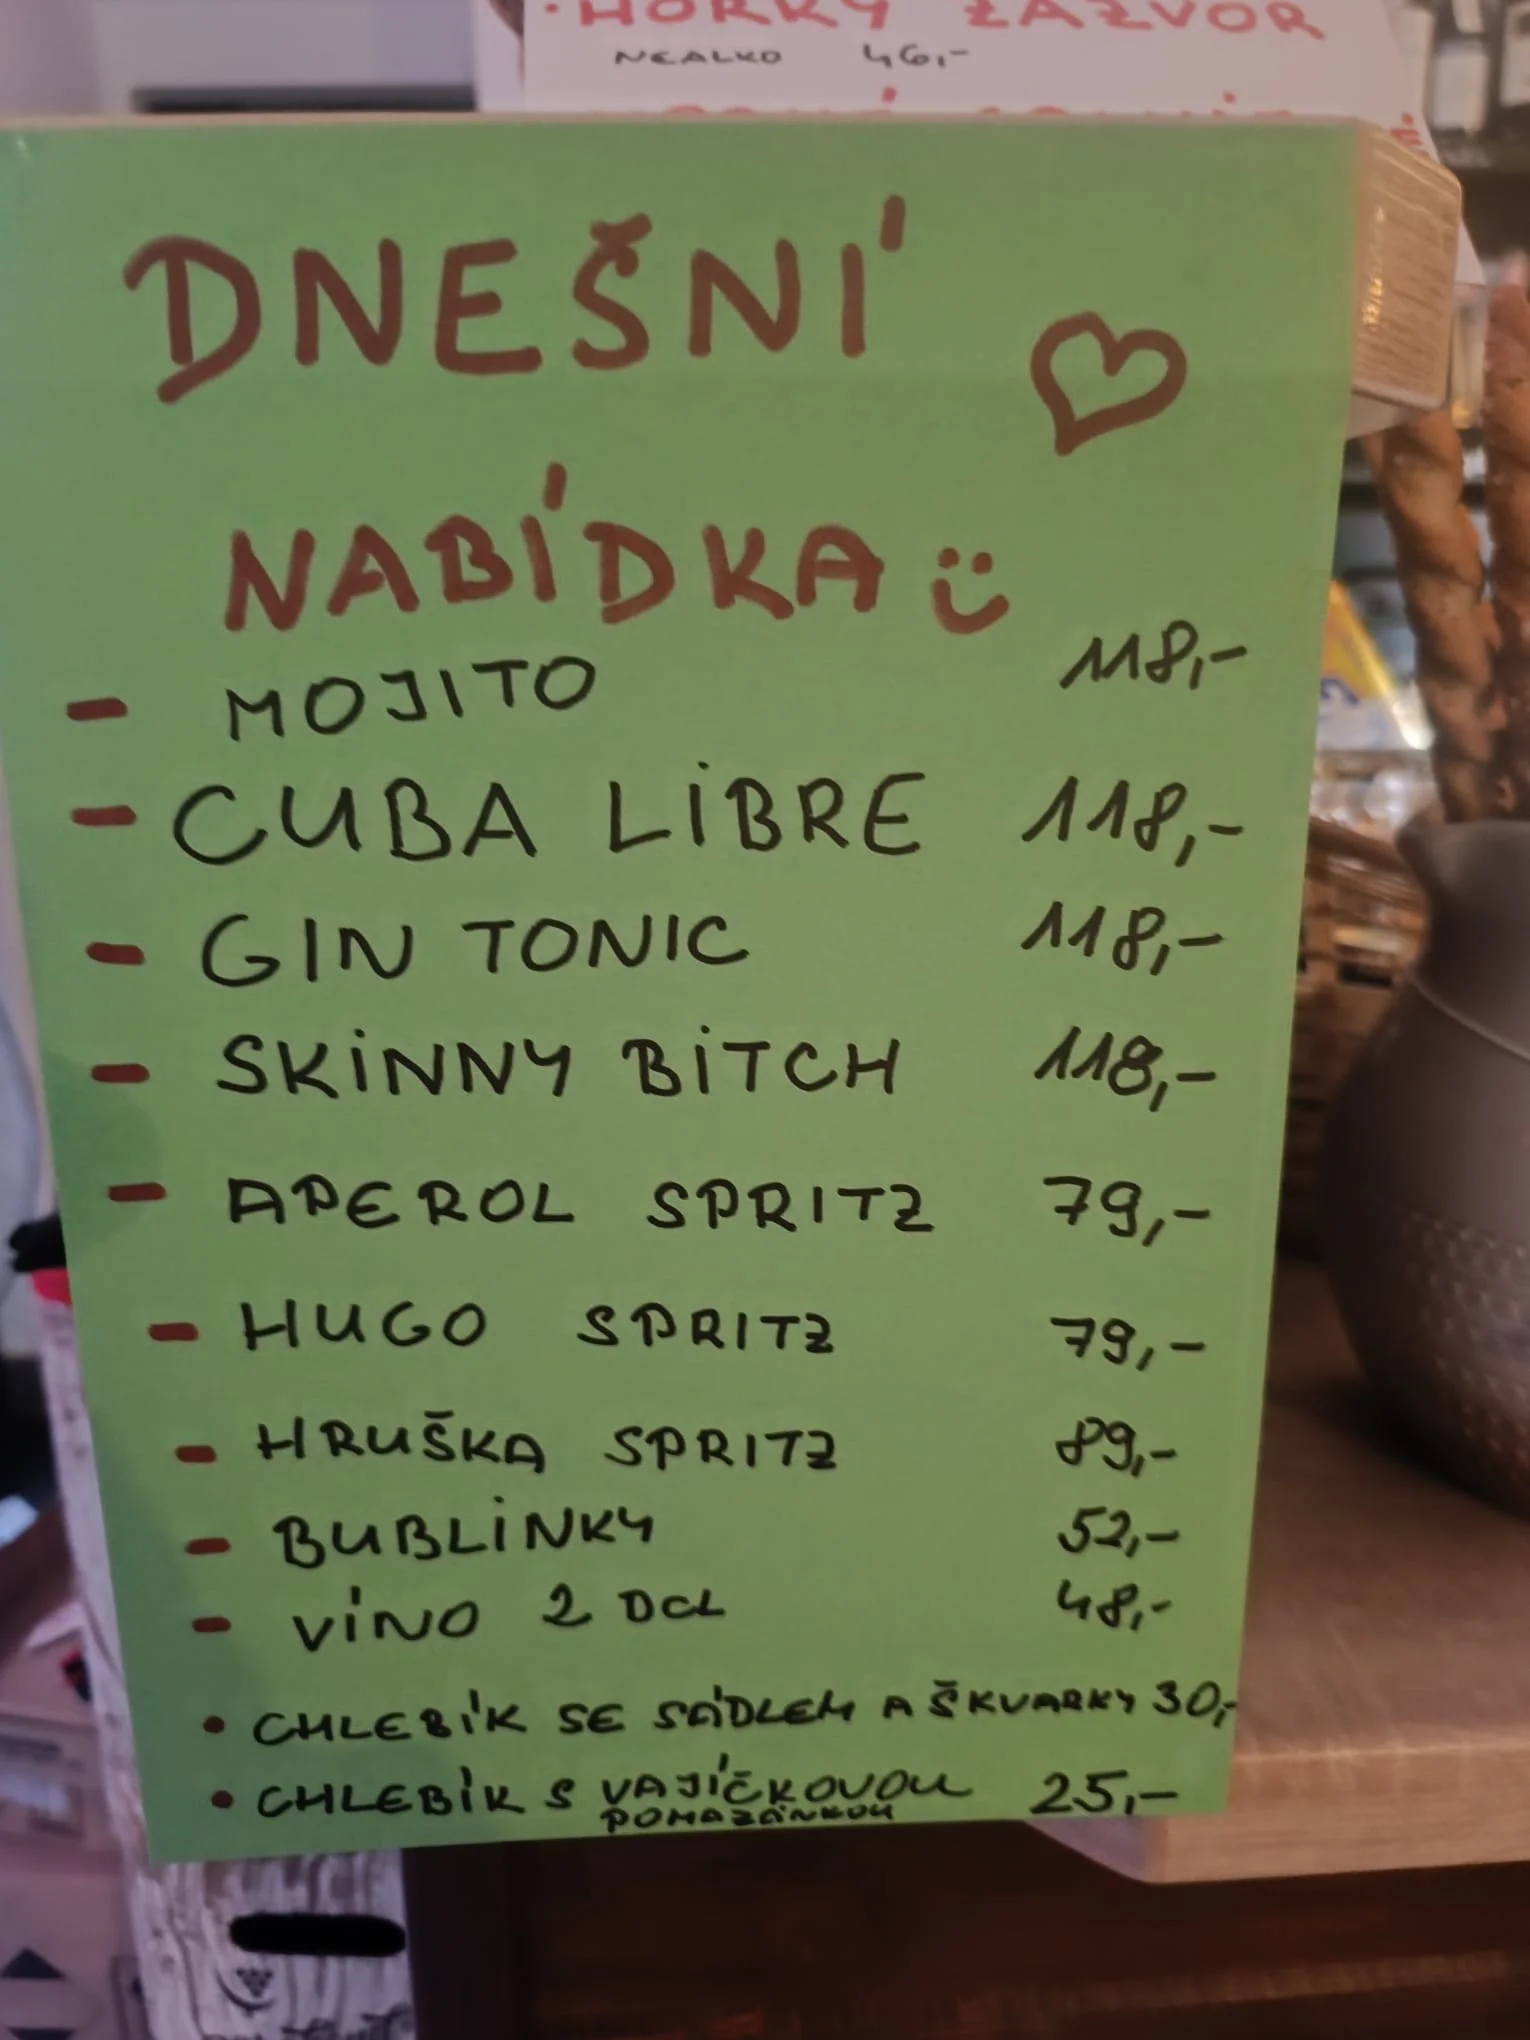 • HORKÝ ZÁZVOR
NEALKO 46,-
DNEŠNÍ
NABÍDKA
- MOJITO 118,-
- CUBA LIBRE 118,-
- GIN TONIC 118,-
- SKINNY BITCH 118,-
- APEROL SPRITZ 79,-
- HUGO SPRITZ 79,-
- HRUŠKA SPRITZ 89,-
- BUBLINKY 52,-
- VÍNO 2 DCL 48,-
• CHLEBÍK SE SÁDLEM A ŠKVARKY 30,-
• CHLEBÍK S VAJÍČKOVOU 25,-
POMAZÁNKOU